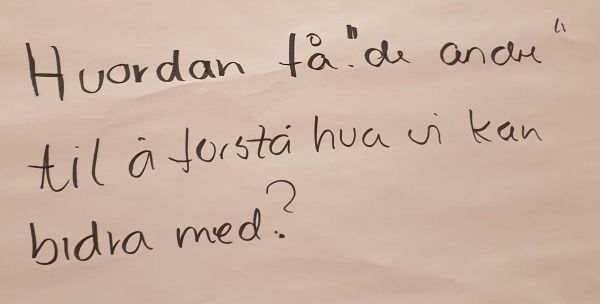 Hvordan få "de andre"
til å forstå hva vi kan
bidra med?